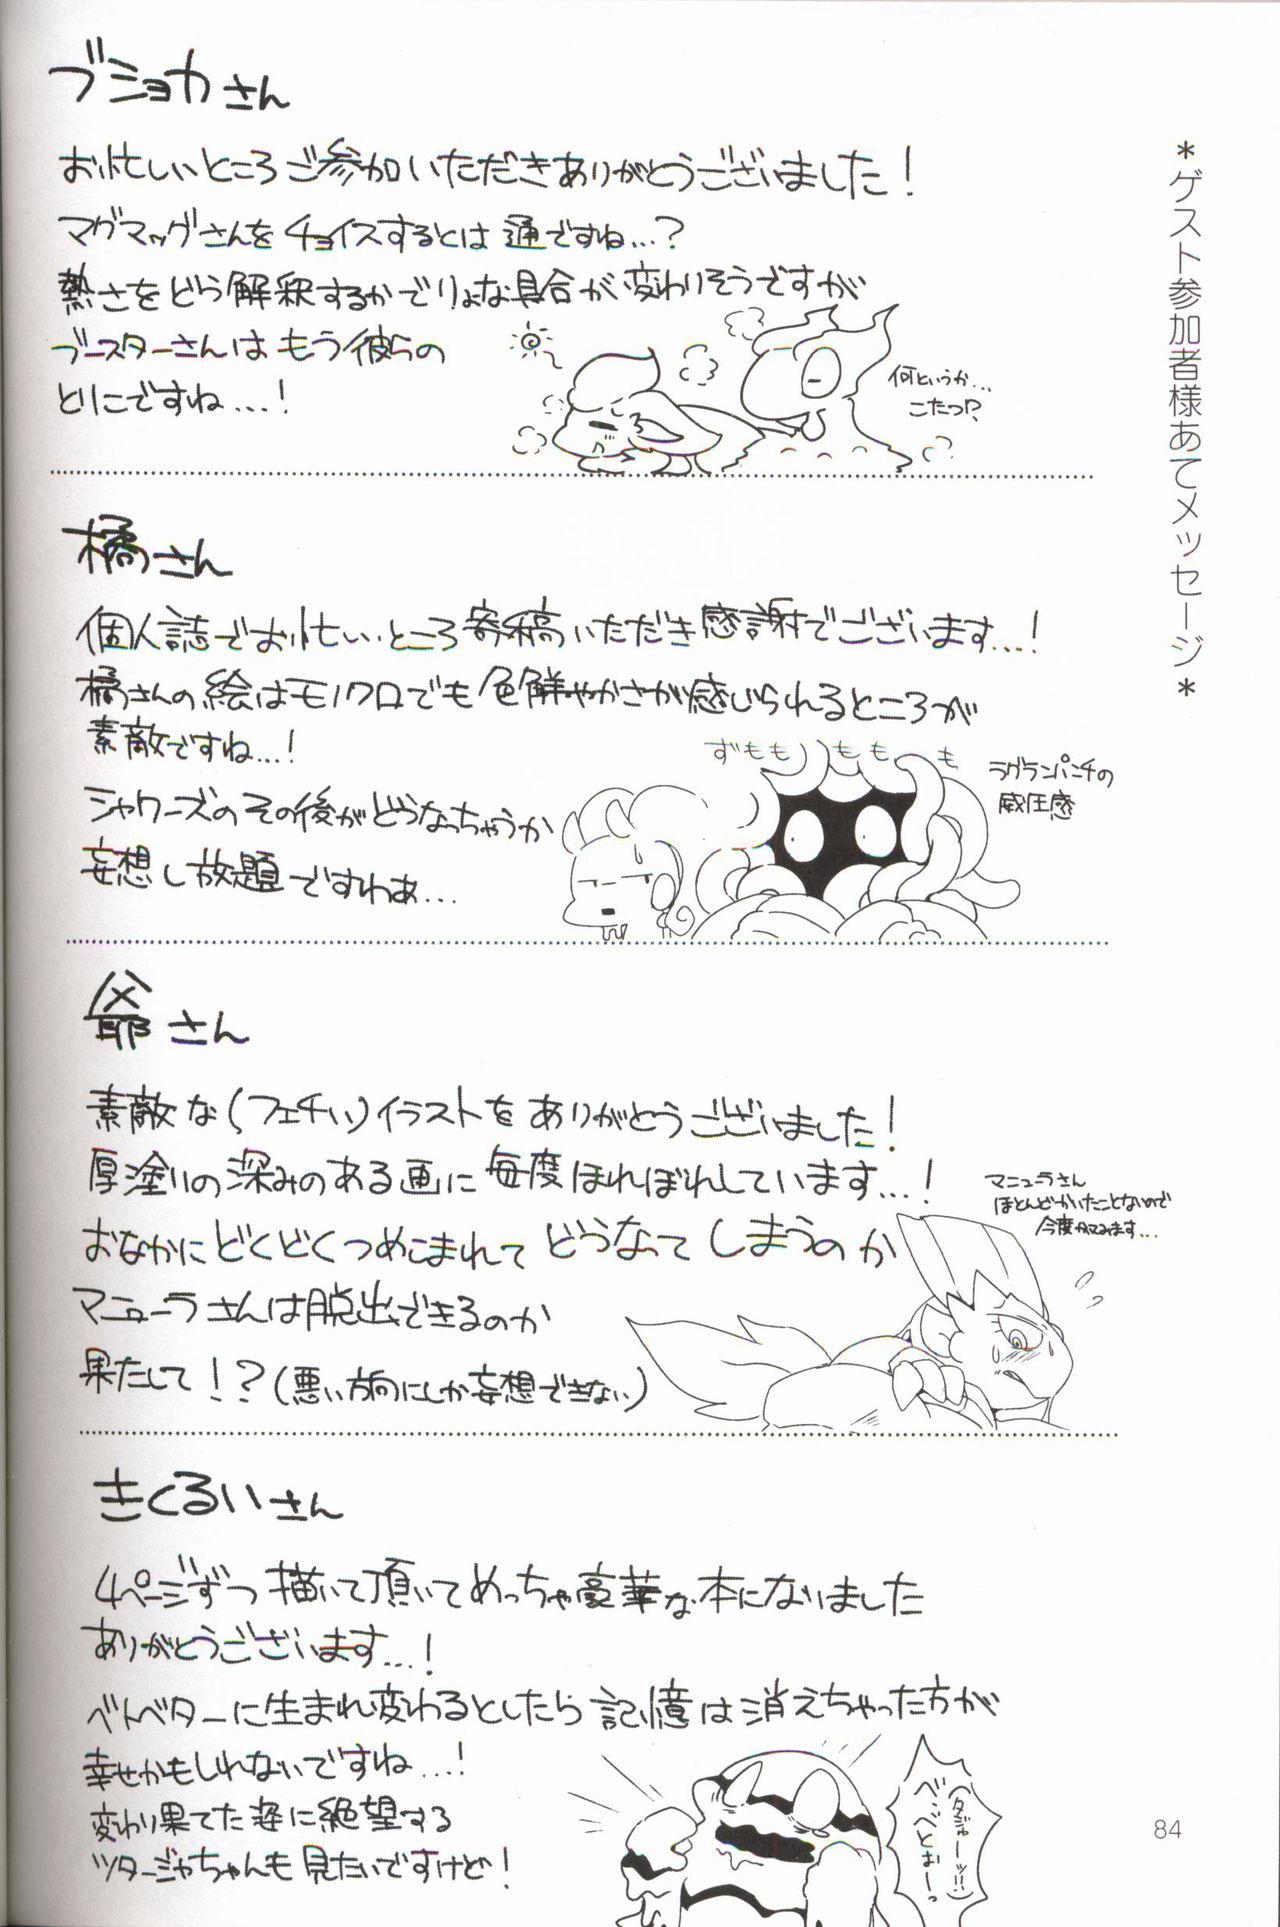 *ゲスト参加者様あてメッセージ*
ブショカさん
お忙しいところご参加いただきありがとうございました!
マグマッグさんをチョイスするとは通ですね…?
熱さをどう解釈するかでりょな具合が変わりそうですが
ブースターさんはもう彼らの
とりこですね…!
何というか…
こたつ!?
橘さん
個人誌でお忙しいところ寄稿いただき感謝でございます…!
橘さんの絵はモノクロでも色鮮やかさが感じられるところが
素敵ですね…!
シャワーズのその後がどうなっちゃうか
妄想し放題ですわぁ…
ずももももも
ラグランパンチの
威圧感
爺さん
素敵な(フェチい)イラストをありがとうございました!
厚塗りの深みのある画に毎度ほれぼれしています…!
おなかにどくどくつめこまれてどうなってしまうのか
マニューラさんは脱出できるのか
果たして!?(悪い方向にしか妄想できない)
マニューラさん
ほとんどかいたことないので
今度かいてみます…
きくるいさん
4ページずつ描いて頂いてめっちゃ豪華な本になりました
ありがとうございます…!
ベトベターに生まれ変わるとしたら記憶は消えちゃった方が
幸せかもしれないですね…!
変わり果てた姿に絶望する
ツタージャちゃんも見たいですけど!
84